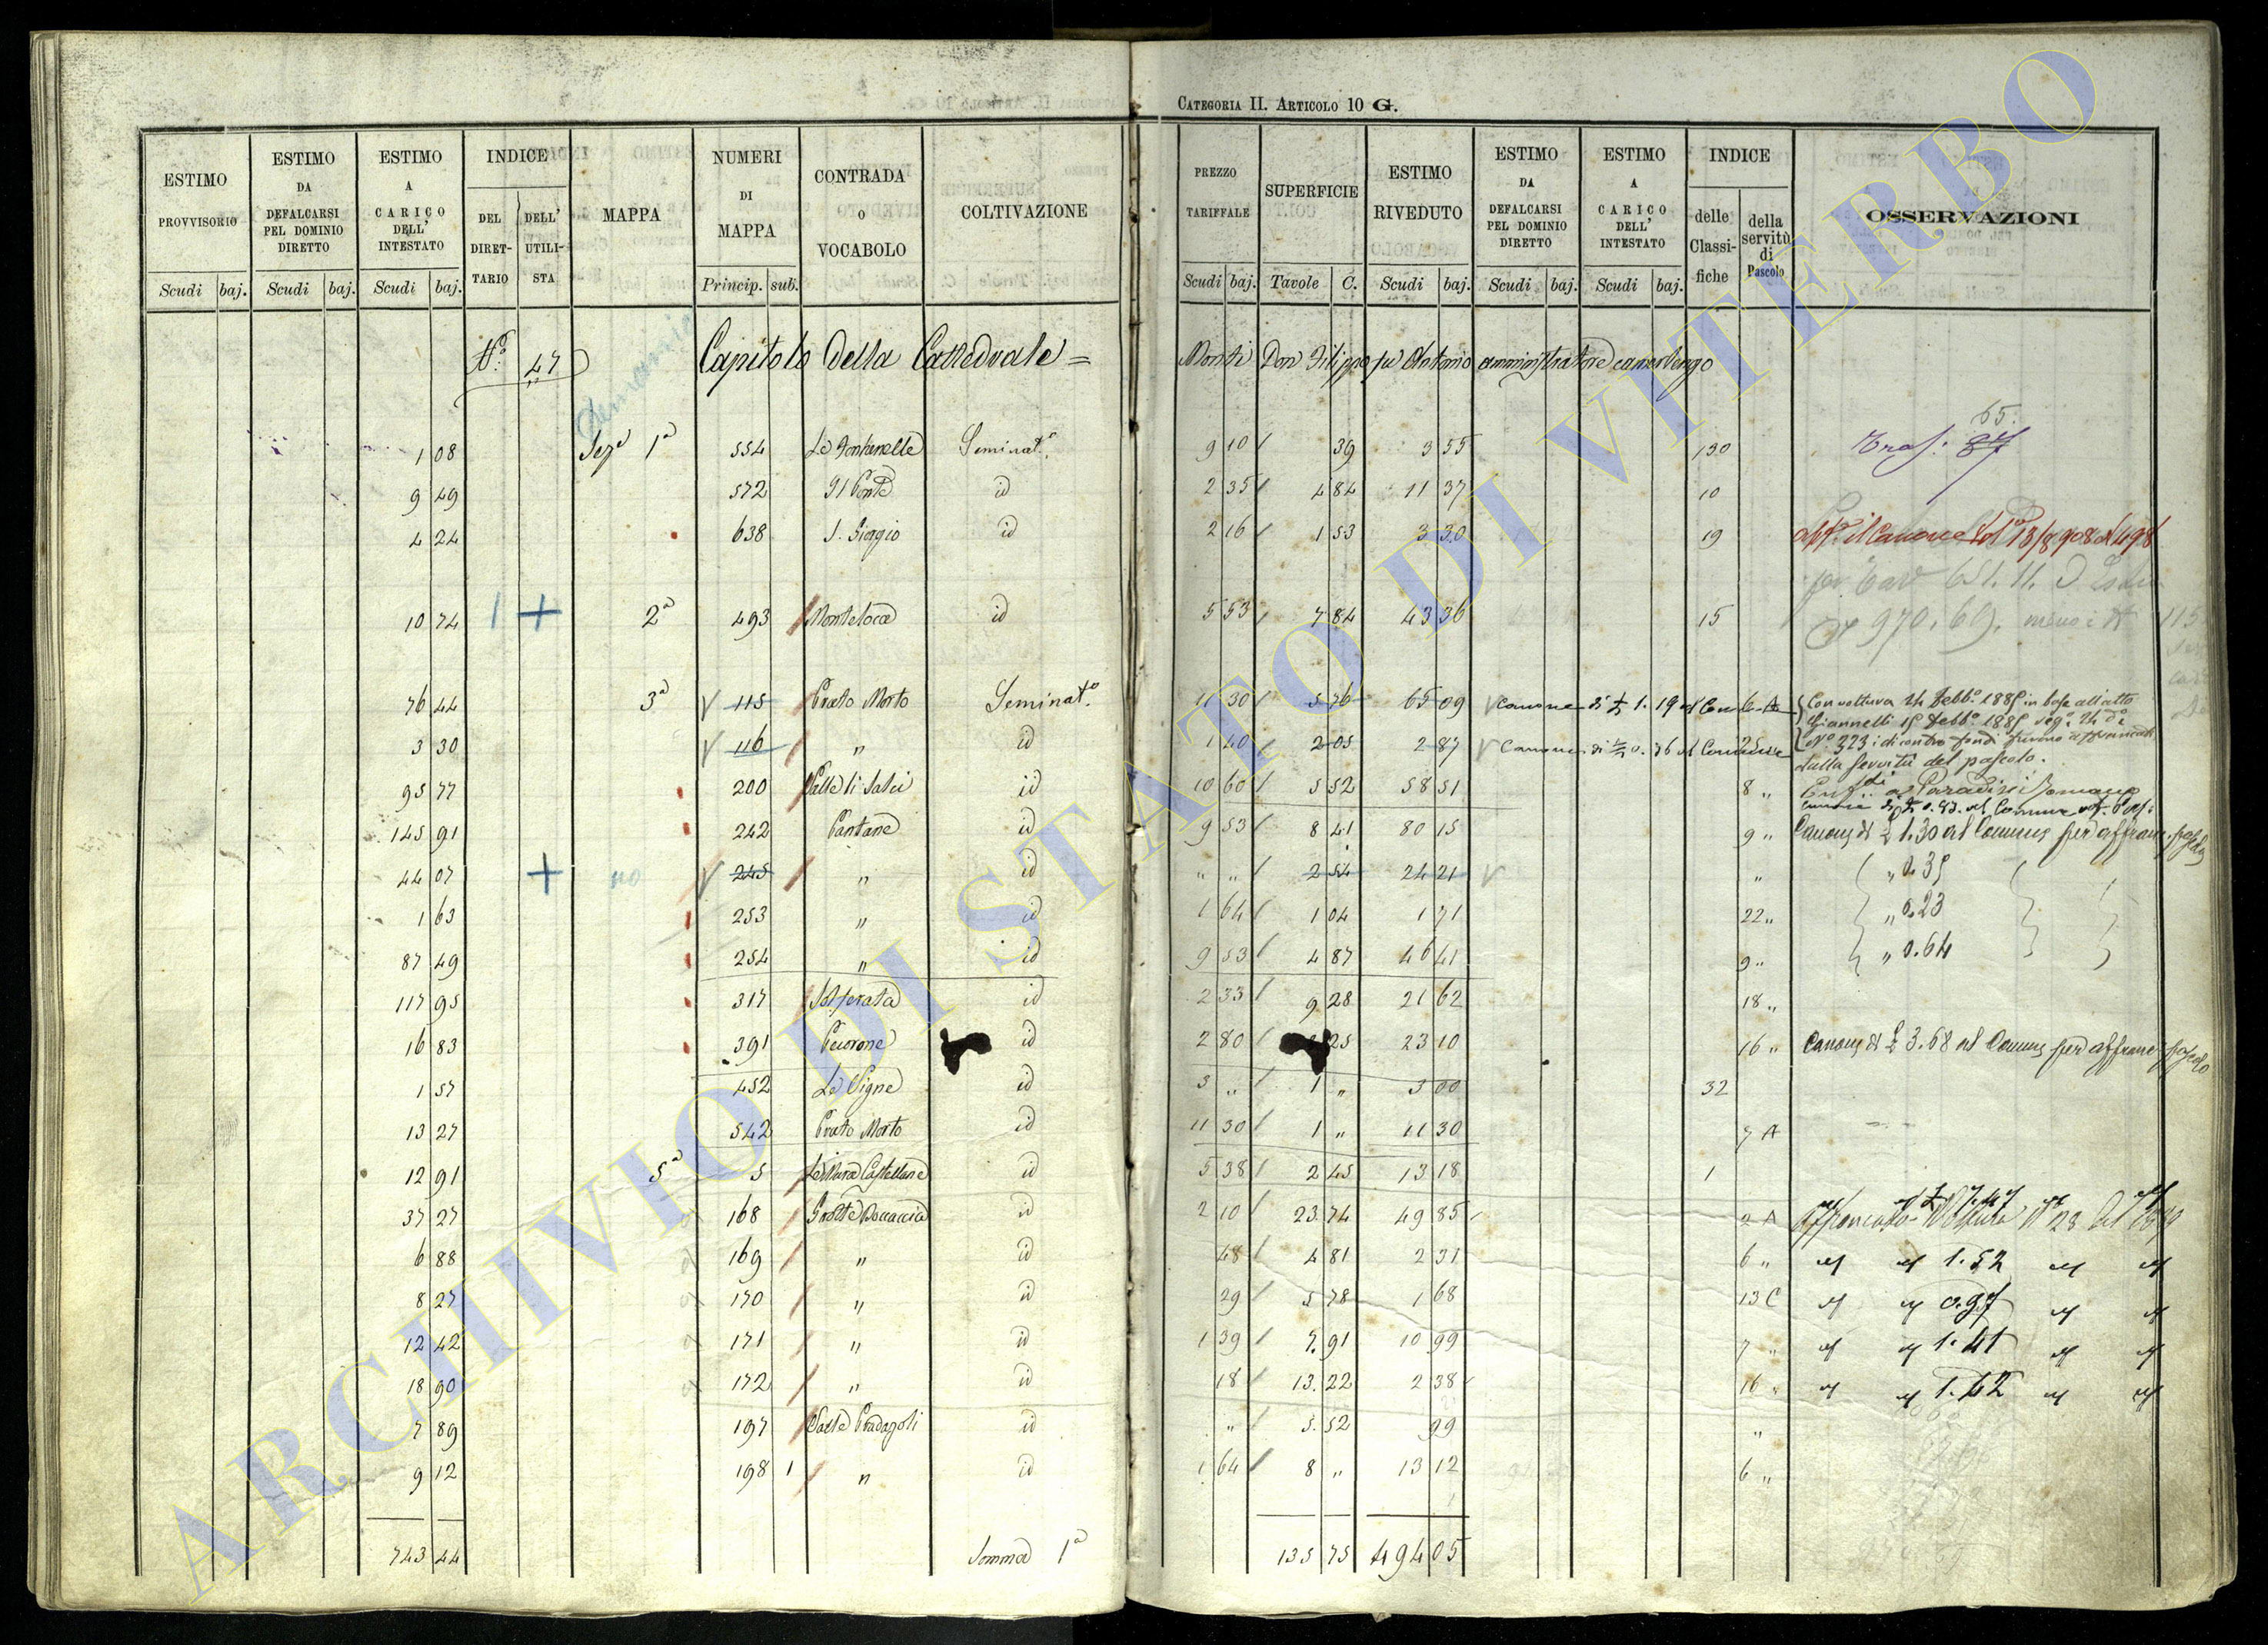 CATEGORIA II. ARTICOLO 10 G.
ESTIMO PROVVISORIO Scudi baj.
ESTIMO DA DEFALCARSI PEL DOMINIO DIRETTO Scudi baj.
ESTIMO A CARICO DELL' INTESTATO Scudi baj.
INDICE DEL DIRETTARIO DELL' UTILISTA
MAPPA
NUMERI DI MAPPA Princip. sub.
CONTRADA O VOCABOLO
COLTIVAZIONE
PREZZO TARIFFALE Scudi baj.
SUPERFICIE Tavole C.
ESTIMO RIVEDUTO Scudi baj.
ESTIMO DA DEFALCARSI PEL DOMINIO DIRETTO Scudi baj.
ESTIMO A CARICO DELL' INTESTATO Scudi baj.
INDICE delle Classifiche della servitù di Pascolo
OSSERVAZIONI
N.° 47 Capitolo della Cattedrale = Monti Don Filippo fu Antonio amministratore camerlengo
65.
1 08 Sez.e 1a 554 Le Fontanelle Seminat.o 9 10 39 3 55 130 Tras: 87
9 49 572 Il Ponte id 2 35 4 84 11 37 10
4 24 638 S. Giorgio id 2 16 1 53 3 30 19
10 74 1 + 2a 493 id 5 53 7 84 43 36 15 970.69.
76 44 3a 115 Prato Morto Seminat.o 11 30 5 76 65 09 canone di 1.19 al Com 6 A Con voltura 24 Febb.o 1885 in base all'atto
Giannelli 15 Febb.o 1885
3 30 116 " id 1 40 2 05 2 87 Canone di 0.76 al Comune N.o 323 i dicontro fondi furono affrancati
dalla servitù del pascolo.
95 77 200 Valle li Salci id 10 60 5 52 58 51 8 "
145 91 242 Pantane id 9 53 8 41 80 15 9 " Canone di £ 1.30 al Comune per affranc. pascolo
44 07 + no 245 " id " " 2 54 24 21 " " 0.39
1 63 253 " id 1 64 1 04 1 71 22 " " 0.23
87 49 254 " id 9 53 4 87 46 41 9 " " 0.64
117 95 317 Solforata id 2 33 9 28 21 62 18 "
16 83 391 Pecorone id 2 80 25 23 10 16 " Canone di £ 3.68 al Comune per affranc pascolo
1 57 452 Le Vigne id 3 " 1 " 3 00 32
13 27 542 Prato Morto id 11 30 1 " 11 30 7 A
12 91 5a 5 Le Mura Castellane id 5 38 2 45 13 18 1
37 27 168 Grotte Boccaccia id 2 10 23.74 49 85 2 A
6 88 169 " id 48 4 81 2 31 6 " 1.52
8 27 170 " id 29 5 78 1 68 13 C 0.97
12 42 171 " id 1 39 7.91 10 99 7 " 1.41
18 90 172 " id 18 13.22 2 38 16 " 1.42
7 89 197 Valle id " 5.52 99 "
9 12 198 1 " id 1 64 8 " 13 12 6 "
743 44 Somma 1a 135 75 494 05
ARCHIVIO DI STATO DI VITERBO